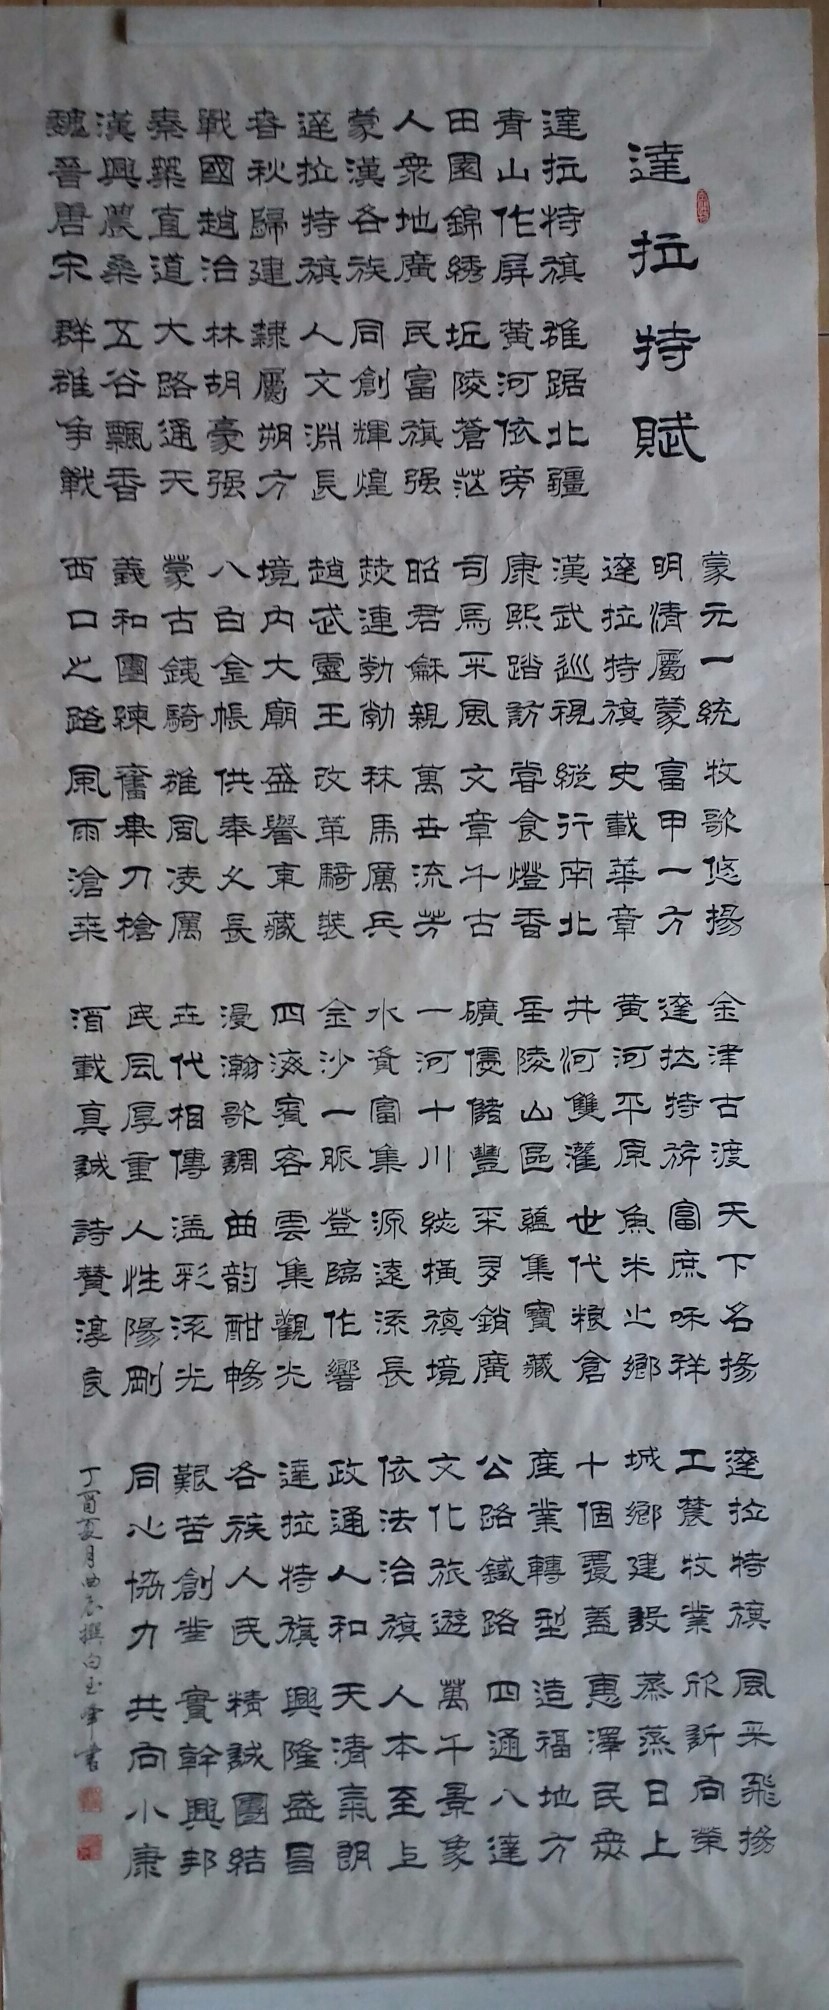 達拉特賦
達拉特旗 雄踞北疆
青山作屏 黃河依旁
田園錦綉 丘陵蒼茫
人衆地廣 民富旗强
蒙漢各族 同創輝煌
達拉特旗 人文淵長
春秋歸建 隸屬朔方
戰國趙治 林胡豪强
秦築直道 大路通天
漢興農桑 五谷飄香
魏晉唐宋 群雄争戰
蒙元一統 牧歌悠揚
明清屬蒙 富甲一方
達拉特旗 史載華章
漢武巡視 縱行南北
康熙踏訪 嘗食燈香
司馬采風 文章千古
昭君龢親 萬世流芳
赫連勃勃 秣馬厲兵
趙武靈王 改革騎裝
境内大廟 盛譽東藏
八白金帳 供奉久長
蒙古鐵騎 雄風凌厲
義和團練 奮舉刀槍
西口之路 風雨滄桑
金津古渡 天下名揚
達拉特旗 富庶咊祥
黃河平原 魚米之鄉
井河雙灌 世代粮倉
丘陵山區 蘊集寶藏
礦優儲豐 采多銷廣
一河十川 縱横旗境
水資富集 源遠流長
金沙一脈 登臨作響
四海賓客 雲集觀光
漫瀚歌調 曲韵酣暢
世代相傳 溢彩流光
民風厚重 人性陽剛
酒載真誠 詩贊淳良
達拉特旗 風采飛揚
工農牧業 欣訢向榮
城鄉建設 蒸蒸日上
十個覆蓋 惠澤民衆
産業轉型 造福地方
公路鐵路 四通八達
文化旅遊 萬千景象
依法治旗 人本至上
政通人和 天清氣朗
達拉特旗 興隆盛昌
各族人民 精誠團結
艱苦創業 實幹興邦
同心協力 共向小康
丁酉夏月曲辰撰白玉峯書